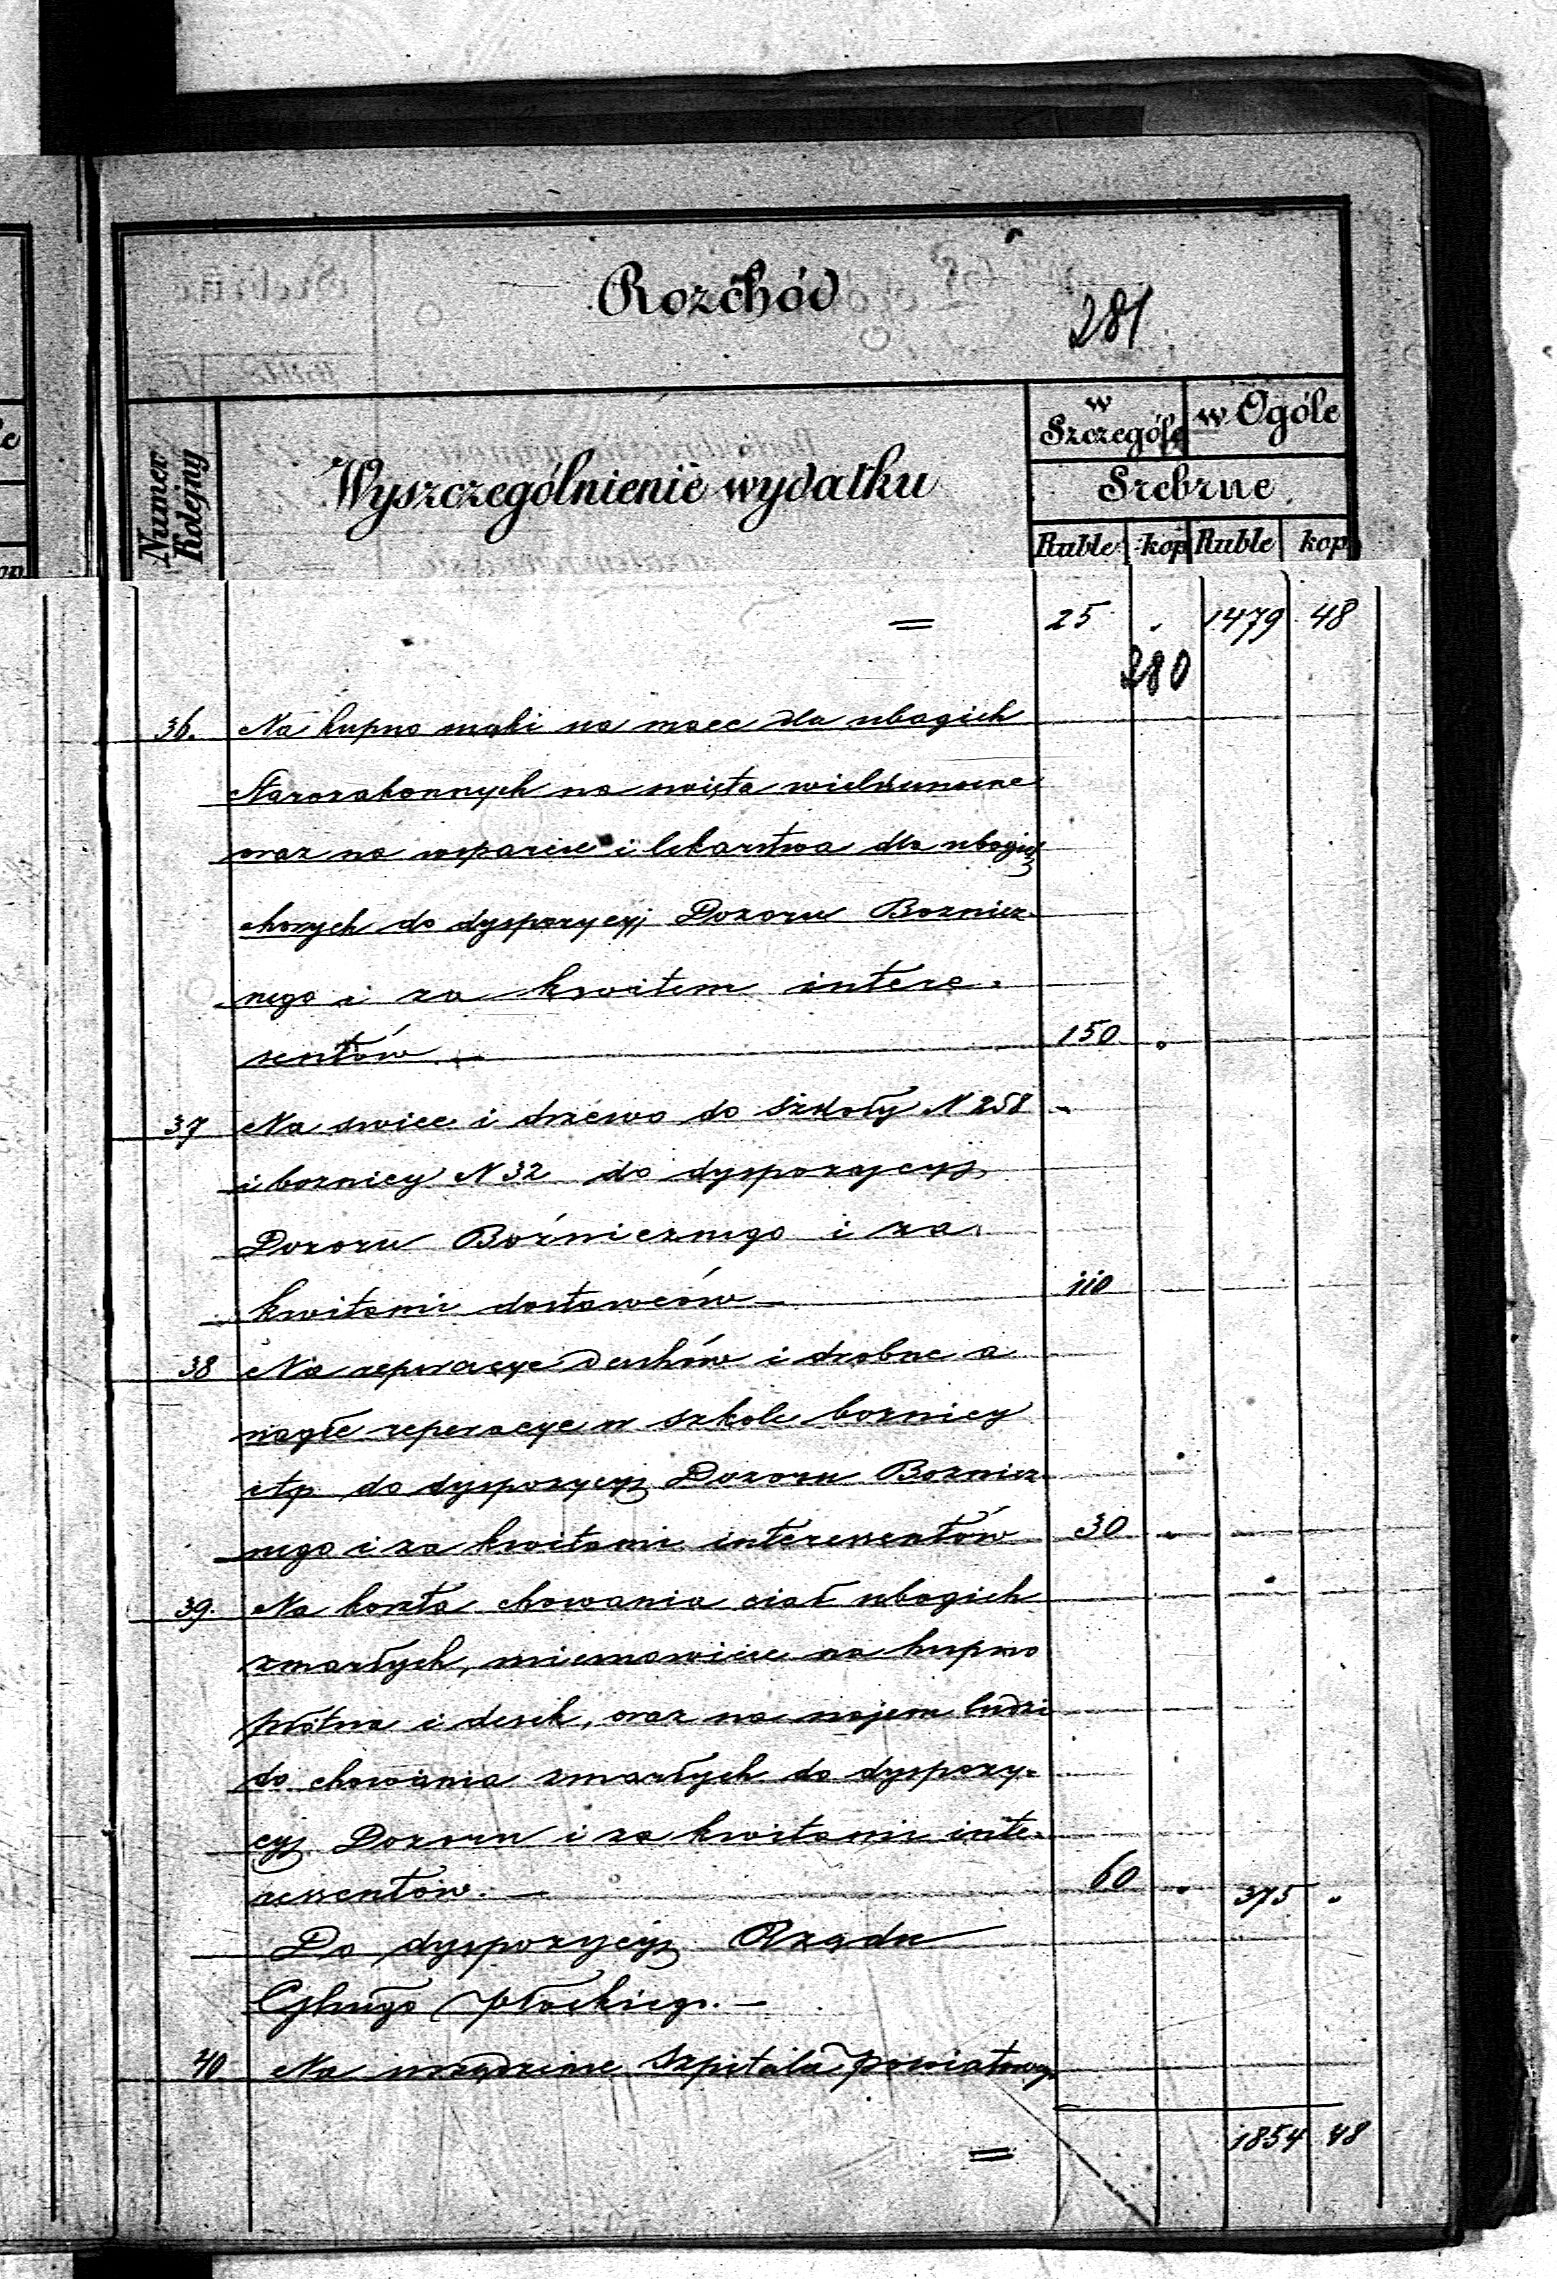 Rozchód
281
Numer Kolejny
Wyszczególnienie wydatku
w Szczególe
w Ogóle
Srebrne
Ruble kop Ruble kop
= 25 . 1479 48
280
36. Na kupno mąki na mace dla ubogich
Starozakonnych na swięta wielkanocne
oraz na wsparcie i lekarstwa dla ubogich
chorych do dyspozycyj Dozoru Boznicz-
nego i za kwitem intere-
sentów. — 150 .
37 Na swiece i drzewo do szkoły N 258
i boznicy N 32 do dyspozycyj
Dozoru Bożnicznego i za
kwitami dostawców — 110
38 Na reperacye dachów i drobne a
nagłe reperacye w szkole boznicy
itp do dyspozycyj Dozoru Boznicz-
nego i za kwitami interessentów 30 .
39. Na koszta chowania ciał ubogich
zmarłych, mianowicie na kupno
płótna i desek, oraz na najem ludzi
do chowania zmarłych do dyspozy-
cyj Dozoru i za kwitami inte-
ressentów. — 60 . 375 .
Do dyspozycyj Rządu
Płockiego. —
40 Na urządzenie szpitala powiatowego
= 1854 48